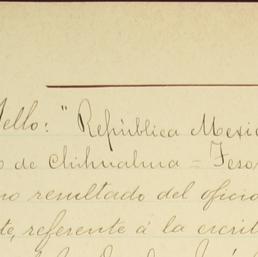 Sello: "República Mexic
o de Chihuahua = Teso
mo resultado del oficio
te, referente á la escrit